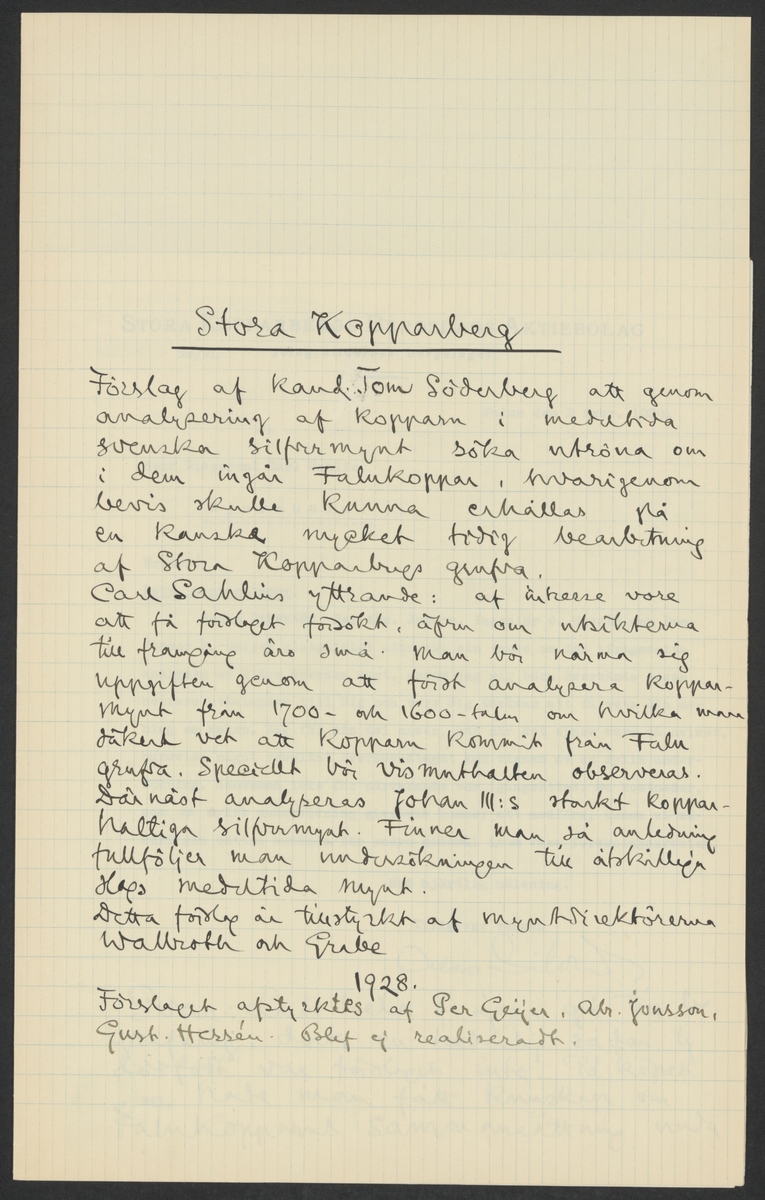 Stora Kopparberg
Förslag af kand. Tom Söderberg att genom
analysering af kopparn i medeltida
svenska silfvermynt söka utröna om
i dem ingår Falukoppar, hvarigenom
bevis skulle kunna erhållas på
en kanske mycket tidig bearbetning
af Stora Kopparbergs grufva.
Carl Sahlins yttrande: af intresse vore
att få förslaget försökt, äfven om utsikterna
till framgång äro små. Man bör närma sig
uppgiften genom att först analysera koppar-
mynt från 1700- och 1600-talen om hvilka man
säkert vet att kopparn kommit från Falu
grufva. Speciellt bör vismuthalten observeras.
Därnäst analyseras Johan III:s starkt koppar-
haltiga silfvermynt. Finner man så anledning
fullföljer man undersökningen till åtskilliga
slags medeltida mynt.
Detta förslag är tillstyrkt af myntdirektörerna
Wallroth och Grabe
1928.
Förslaget afstyrktes af Per Geijer, Abr. Jonsson,
Gust. Hessén. Blef ej realiseradt.